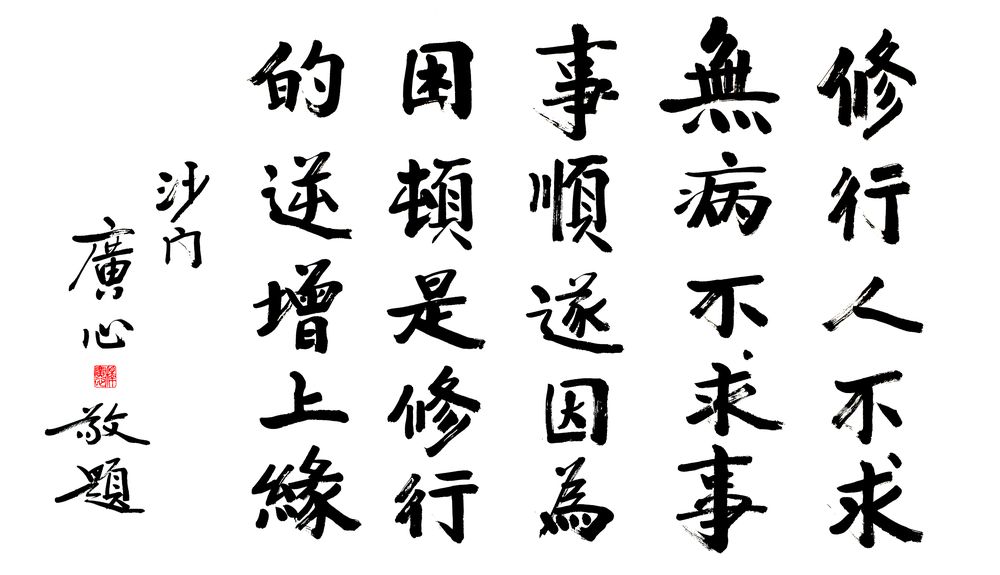 修行人不求
無病不求事
事順遂因為
困頓是修行
的逆增上緣
沙门
廣心
敬題